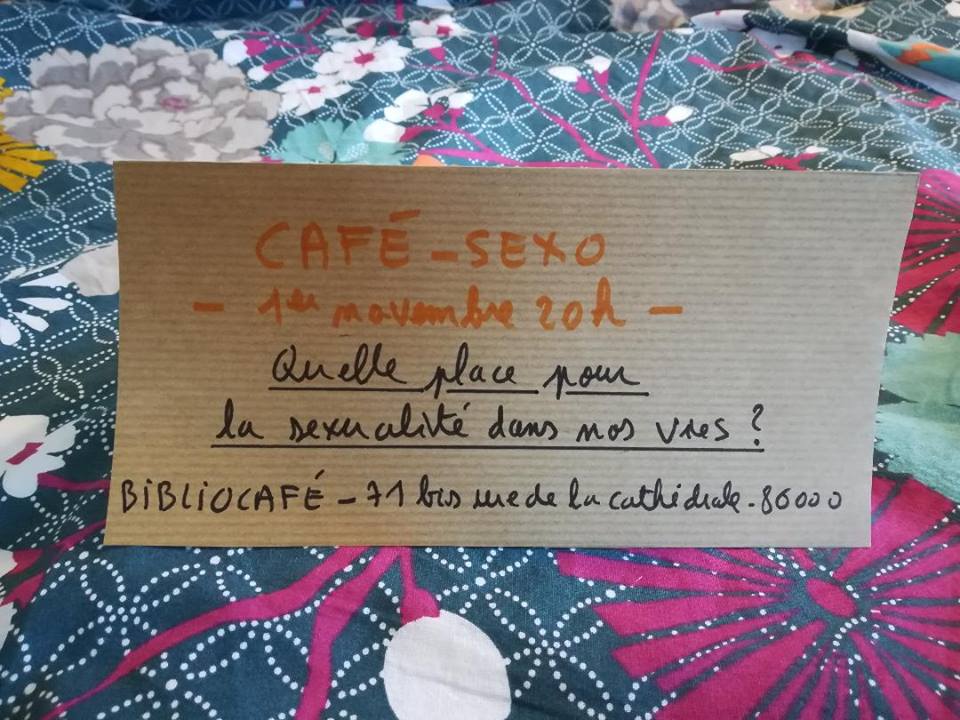 CAFÉ - SEXO
- 1er novembre 20h -
Quelle place pour
la sexualité dans nos vies ?
BIBLIOCAFÉ - 71 bis rue de la cathédrale - 86000